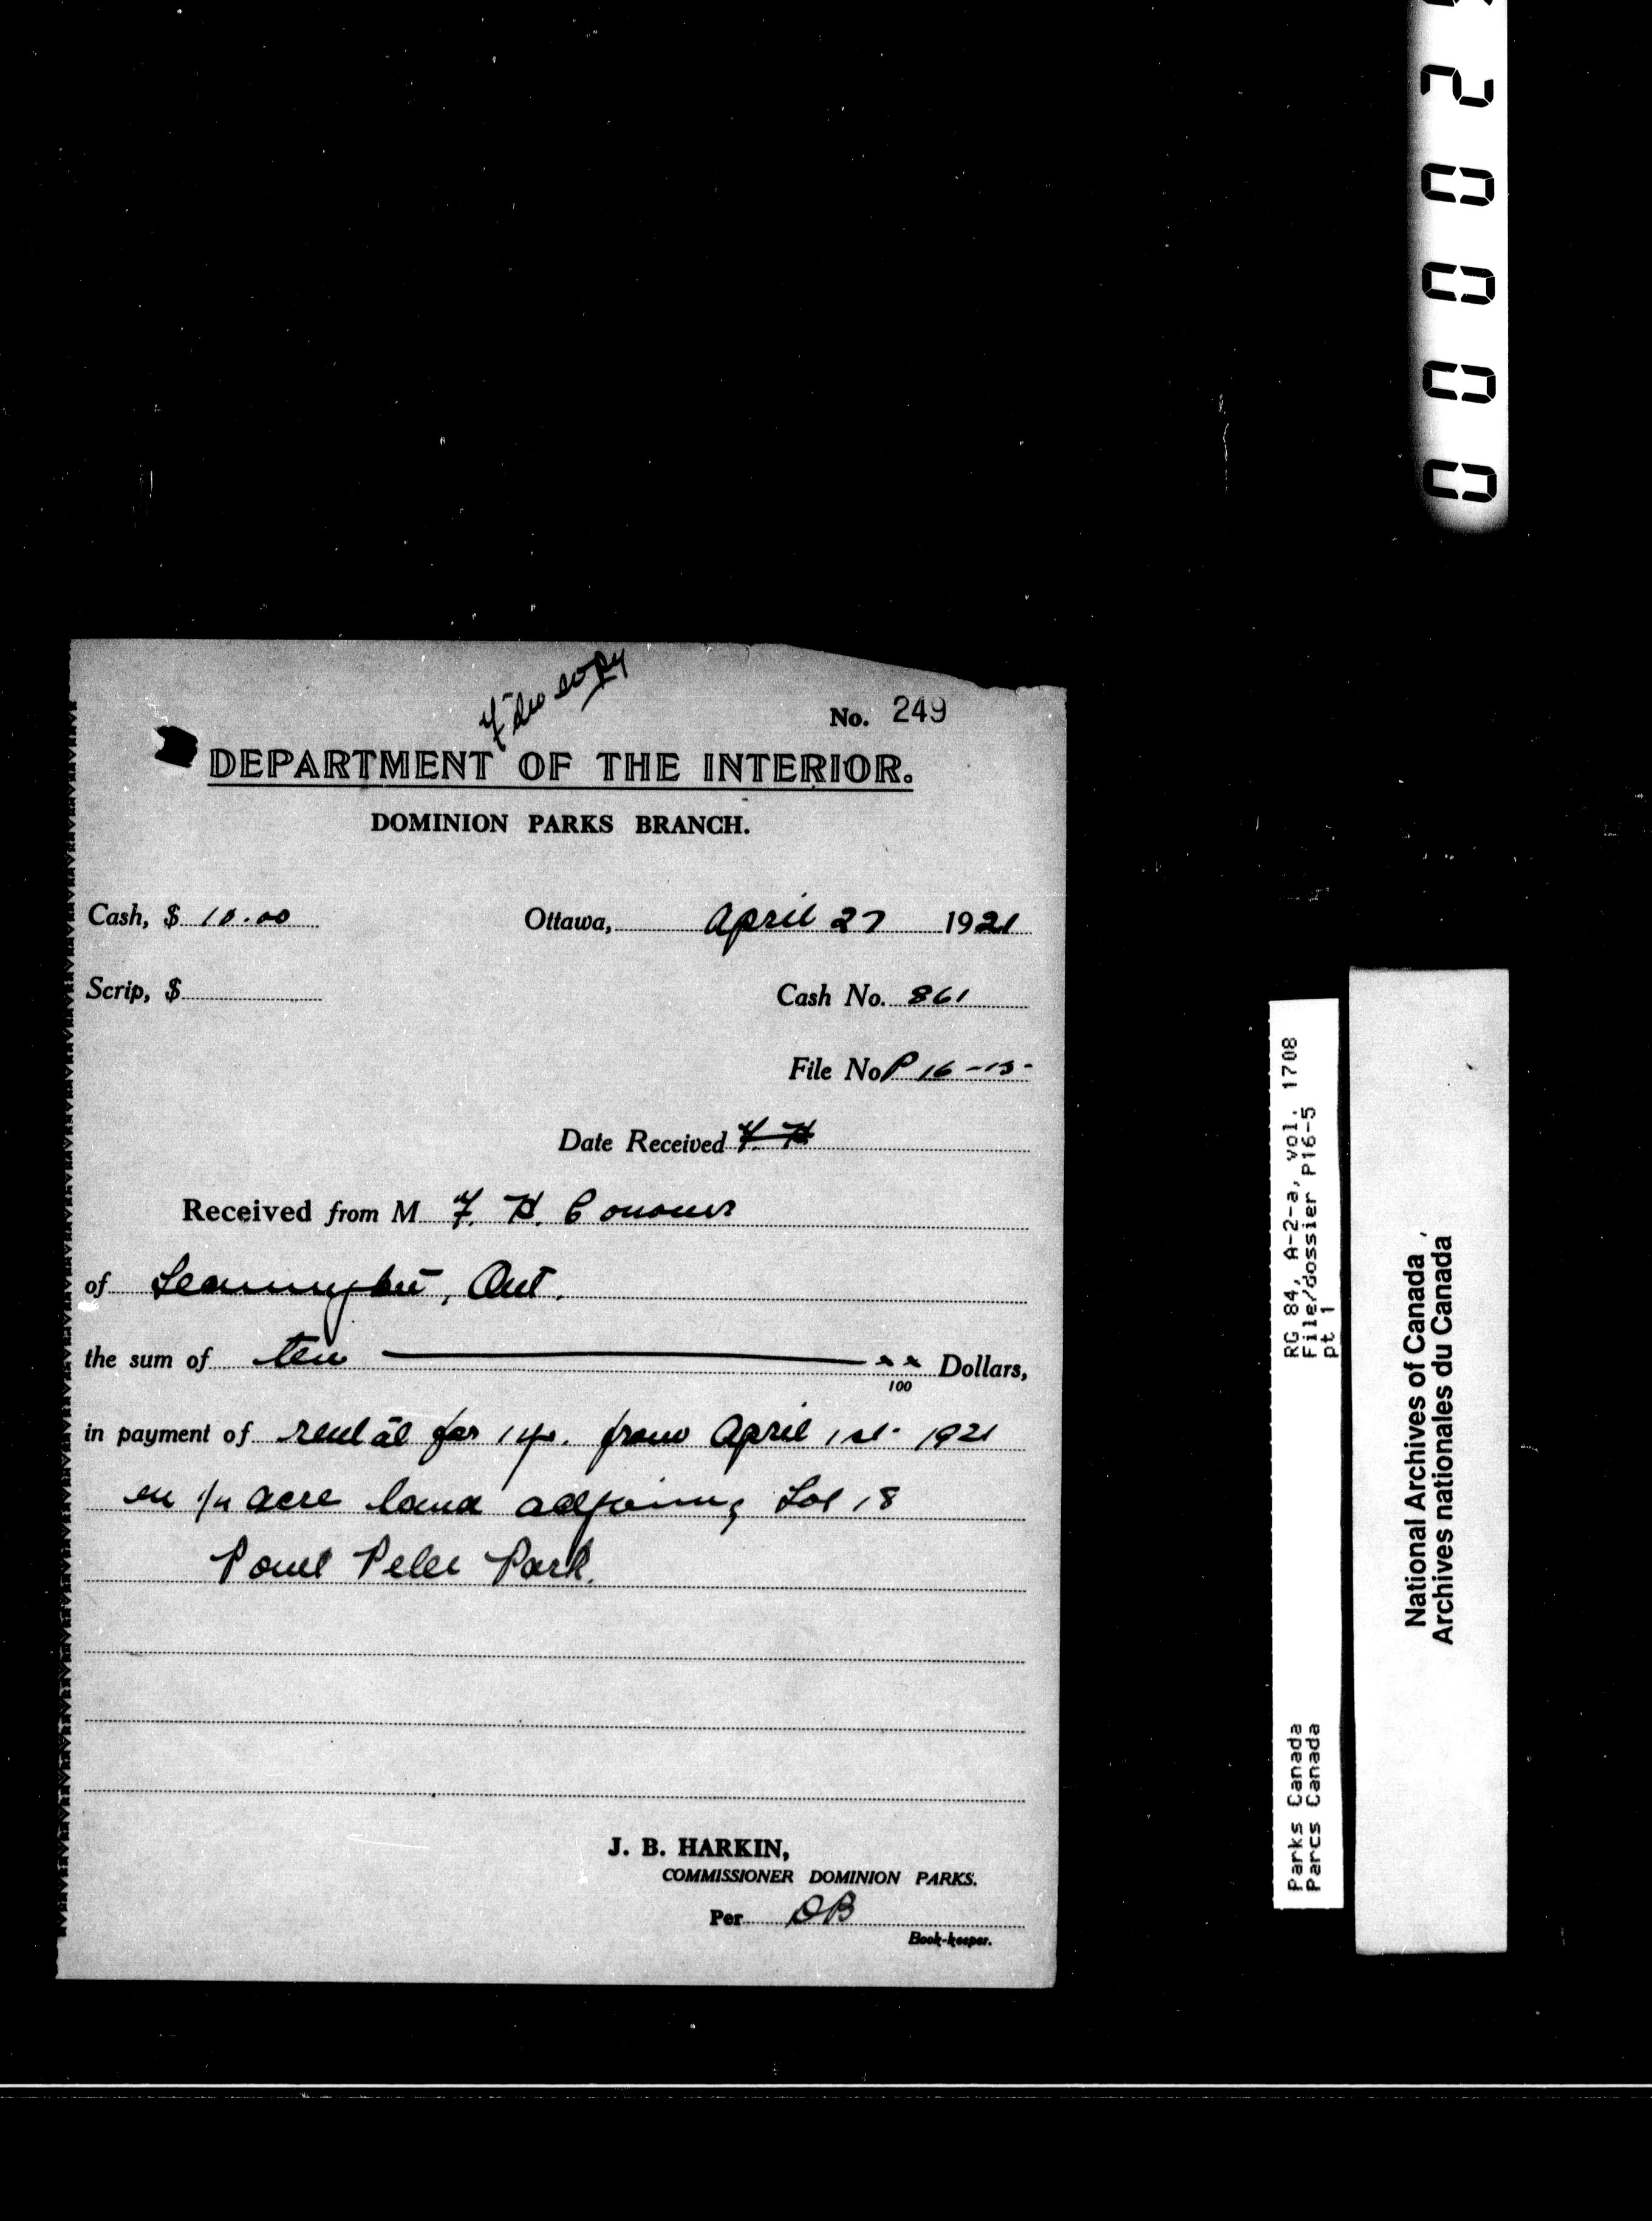 File copy
No. 249
DEPARTMENT OF THE INTERIOR.
DOMINION PARKS BRANCH.
Cash, $ 10.00 Ottawa, April 27 1921
Scrip, $
Cash No. 861
File No P 16-15-
Date Received F. H
Received from M F. H. Conover
of Leamington, Ont.
the sum of ten xx/100 Dollars,
in payment of rental for 1 yr. from April 1st 1921
on 1/4 acre land adjoining Lot 18
Point Pelee Park.
J. B. HARKIN,
COMMISSIONER DOMINION PARKS.
Per OB
Book-keeper.
20000
RG 84, A-2-a, vol. 1708
File/dossier P16-5
pt 1
Parks Canada
Parcs Canada
National Archives of Canada
Archives nationales du Canada